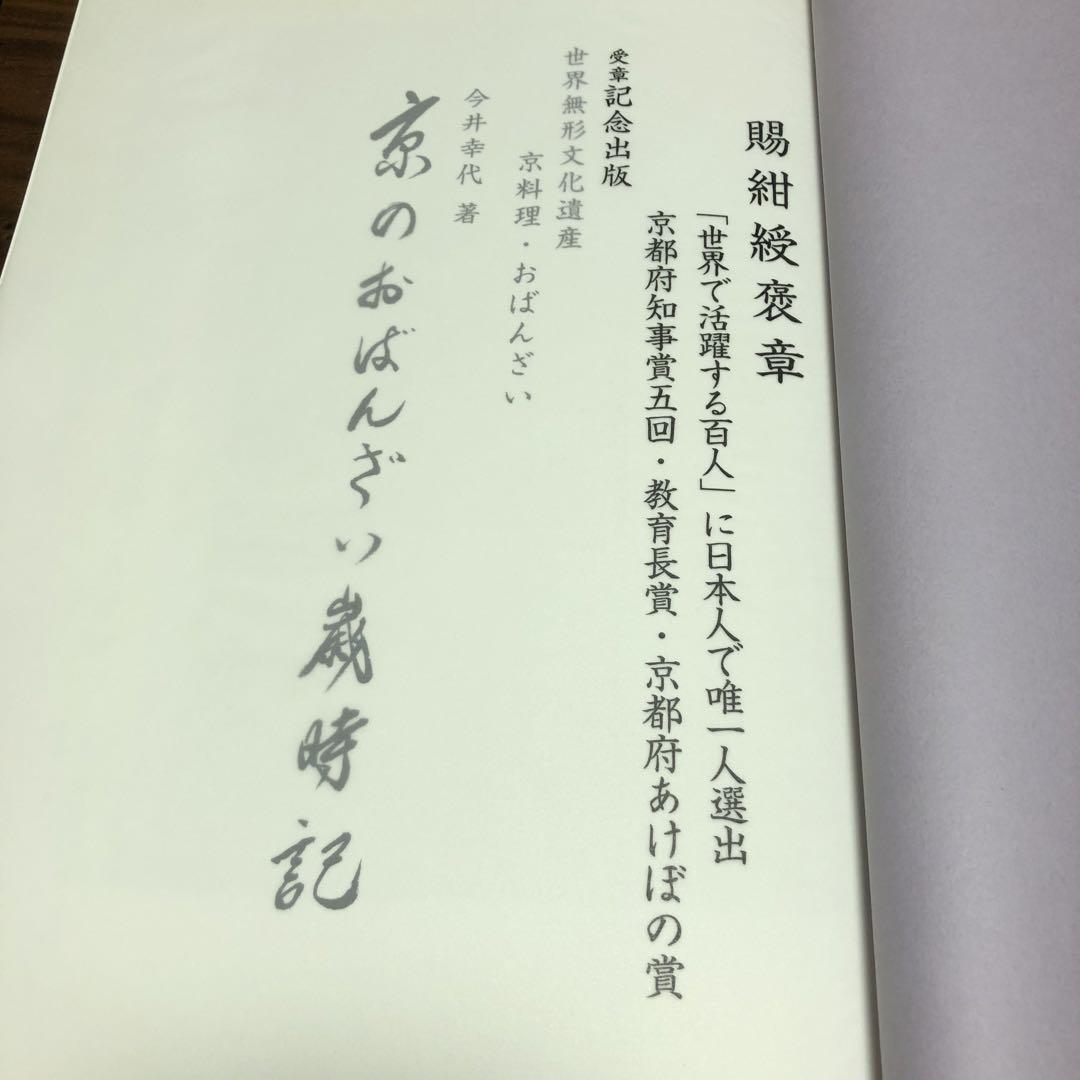 賜紺綬褒章
「世界で活躍する百人」に日本人で唯一人選出
京都府知事賞五回・教育長賞・京都府あけぼの賞
受章記念出版
世界無形文化遺産
京料理・おばんざい
今井幸代 著
京のおばんざい歳時記